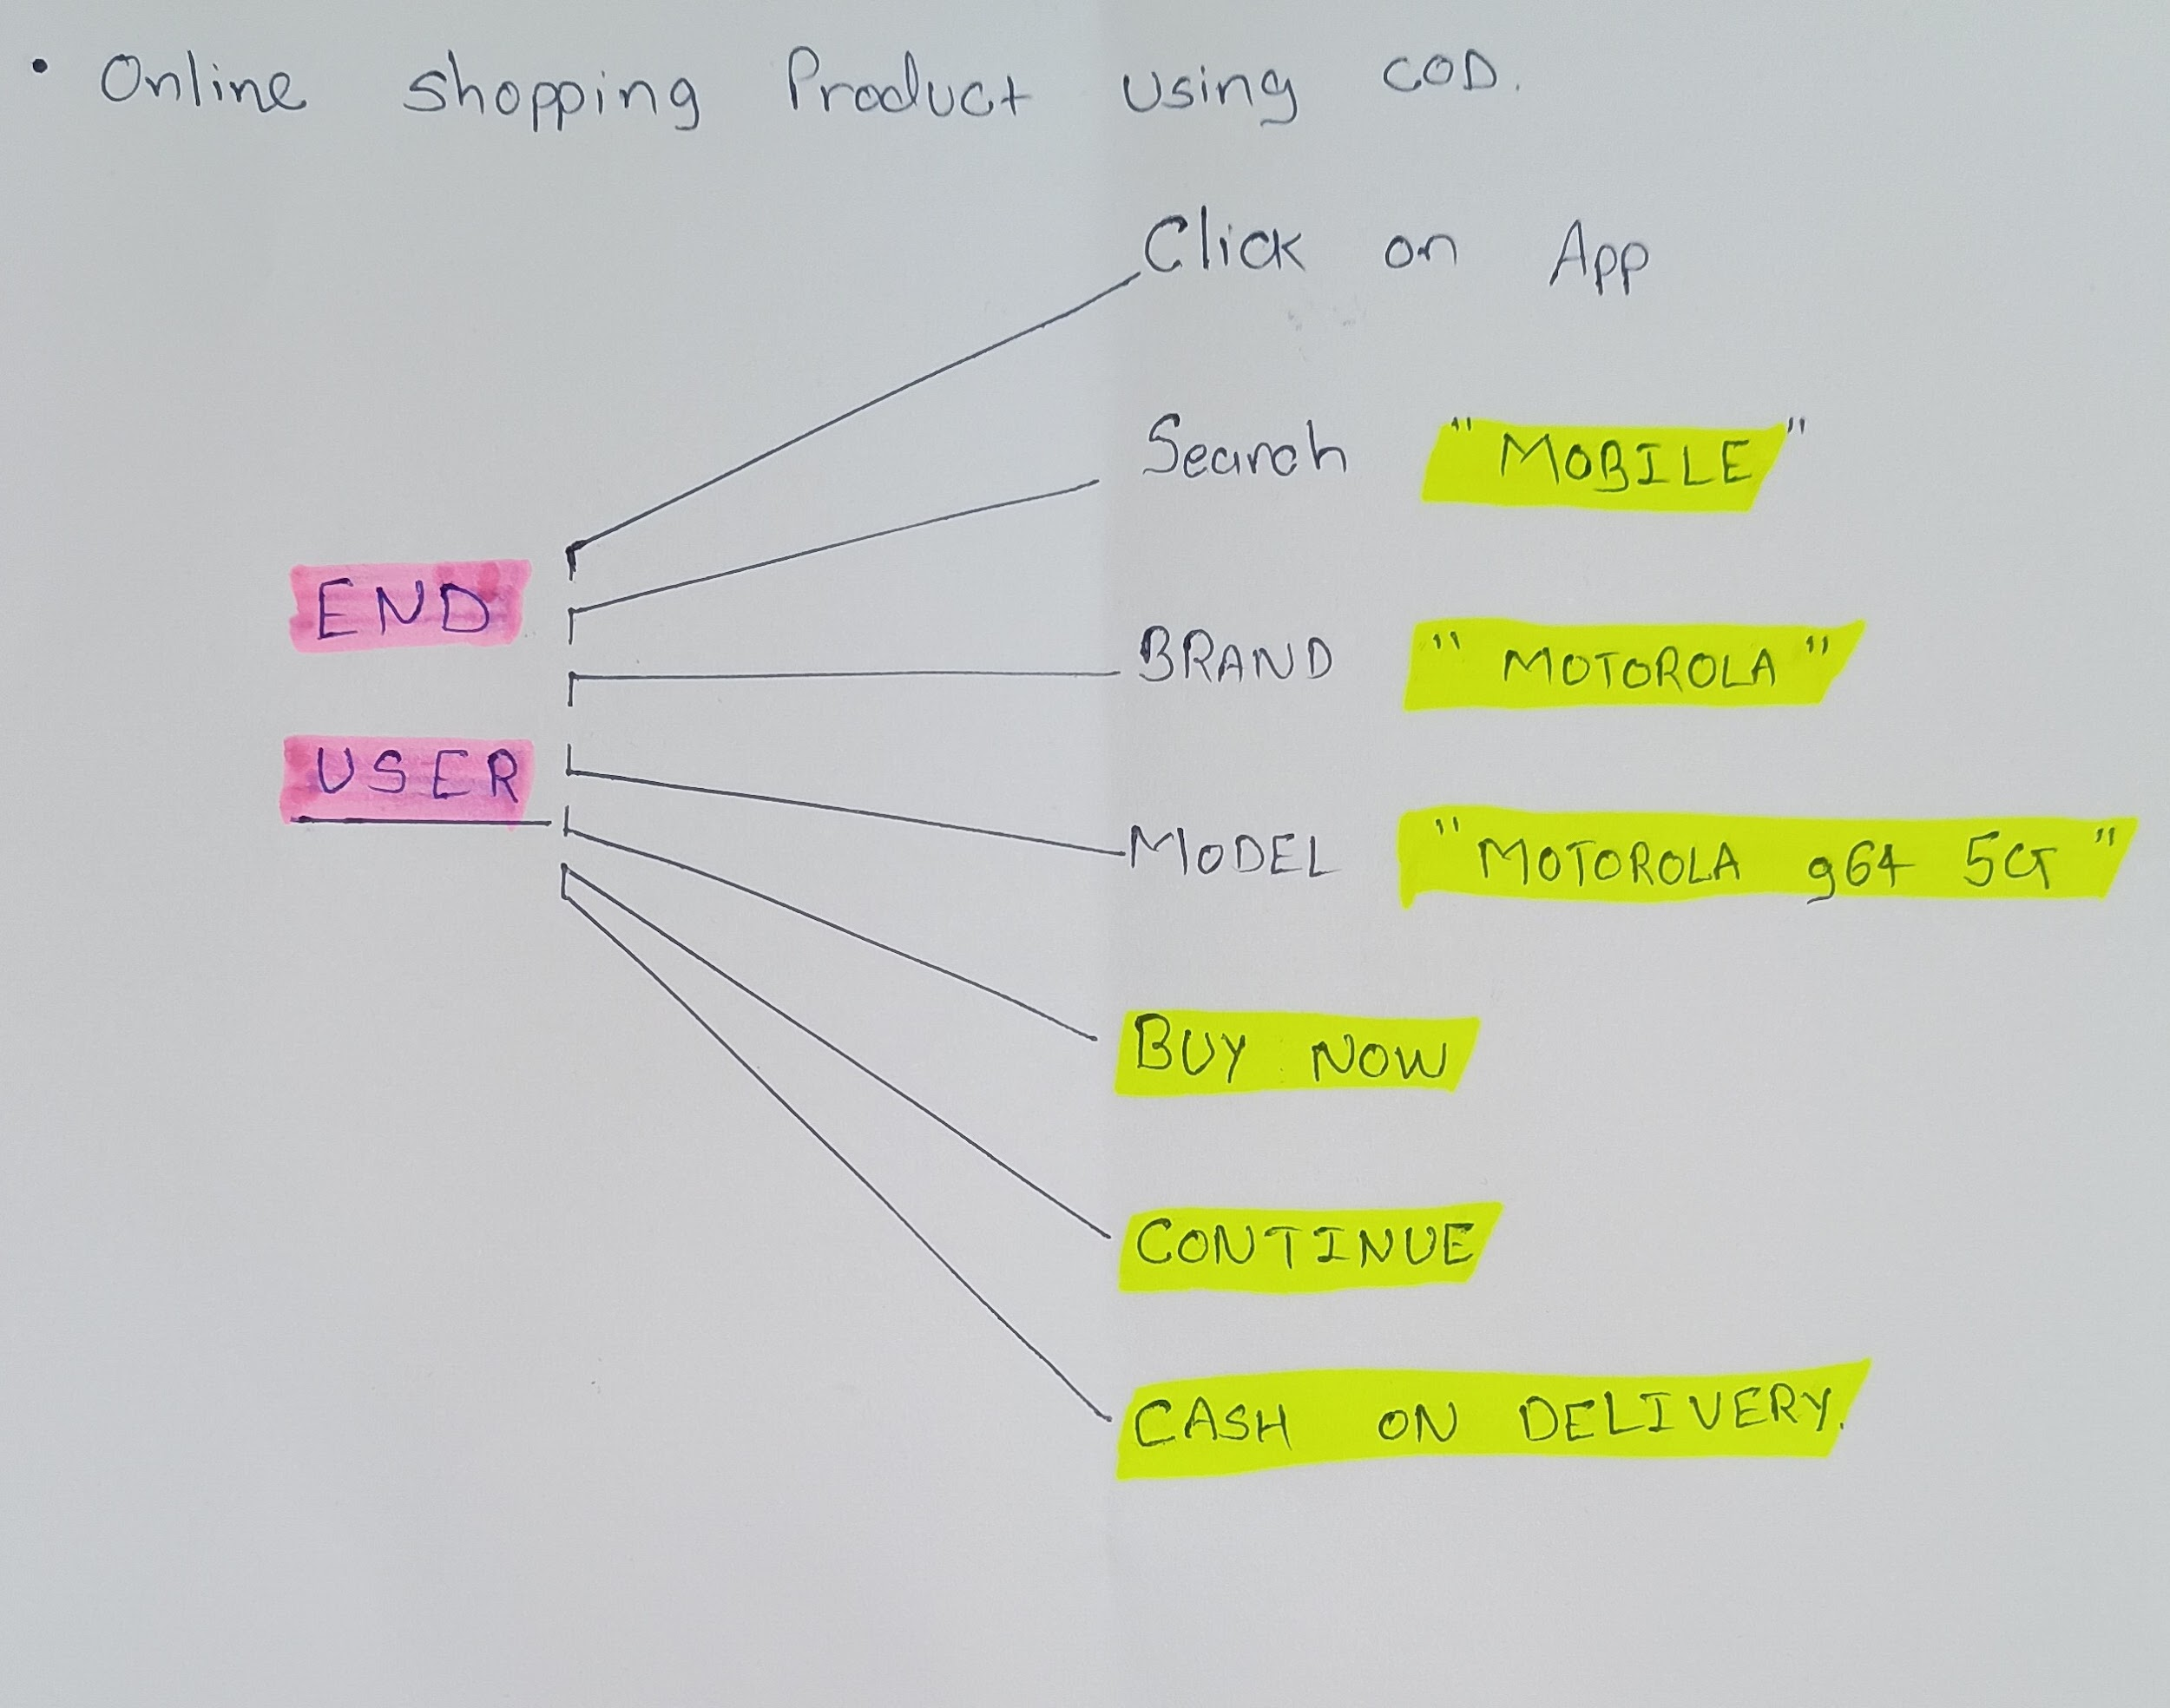 • Online shopping Product using COD.
Click on App
Search "MOBILE"
END
BRAND "MOTOROLA"
USER
MODEL "MOTOROLA g64 5G"
BUY NOW
CONTINUE
CASH ON DELIVERY.